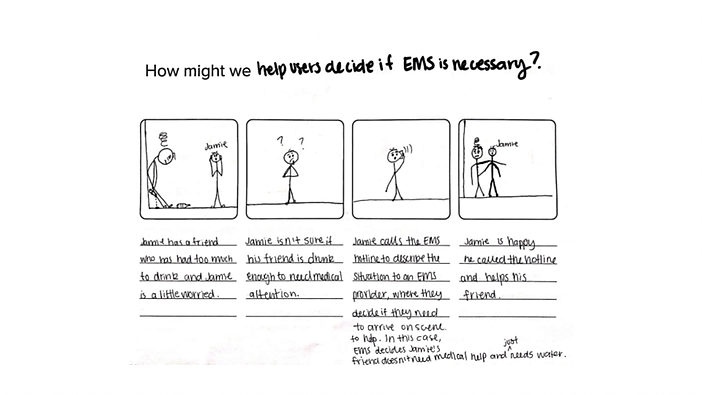 How might we help users decide if EMS is necessary?
Jamie
? ?
Jamie
Jamie has a friend
who has had too much
to drink and Jamie
is a little worried.
Jamie isn't sure if
his friend is drunk
enough to need medical
attention.
Jamie calls the EMS
hotline to describe the
situation to an EMS
provider, where they
decide if they need
to arrive on scene
to help. In this case,
EMS decides Jamie's
friend doesn't need medical help and just needs water.
Jamie is happy
he called the hotline
and helps his
friend.